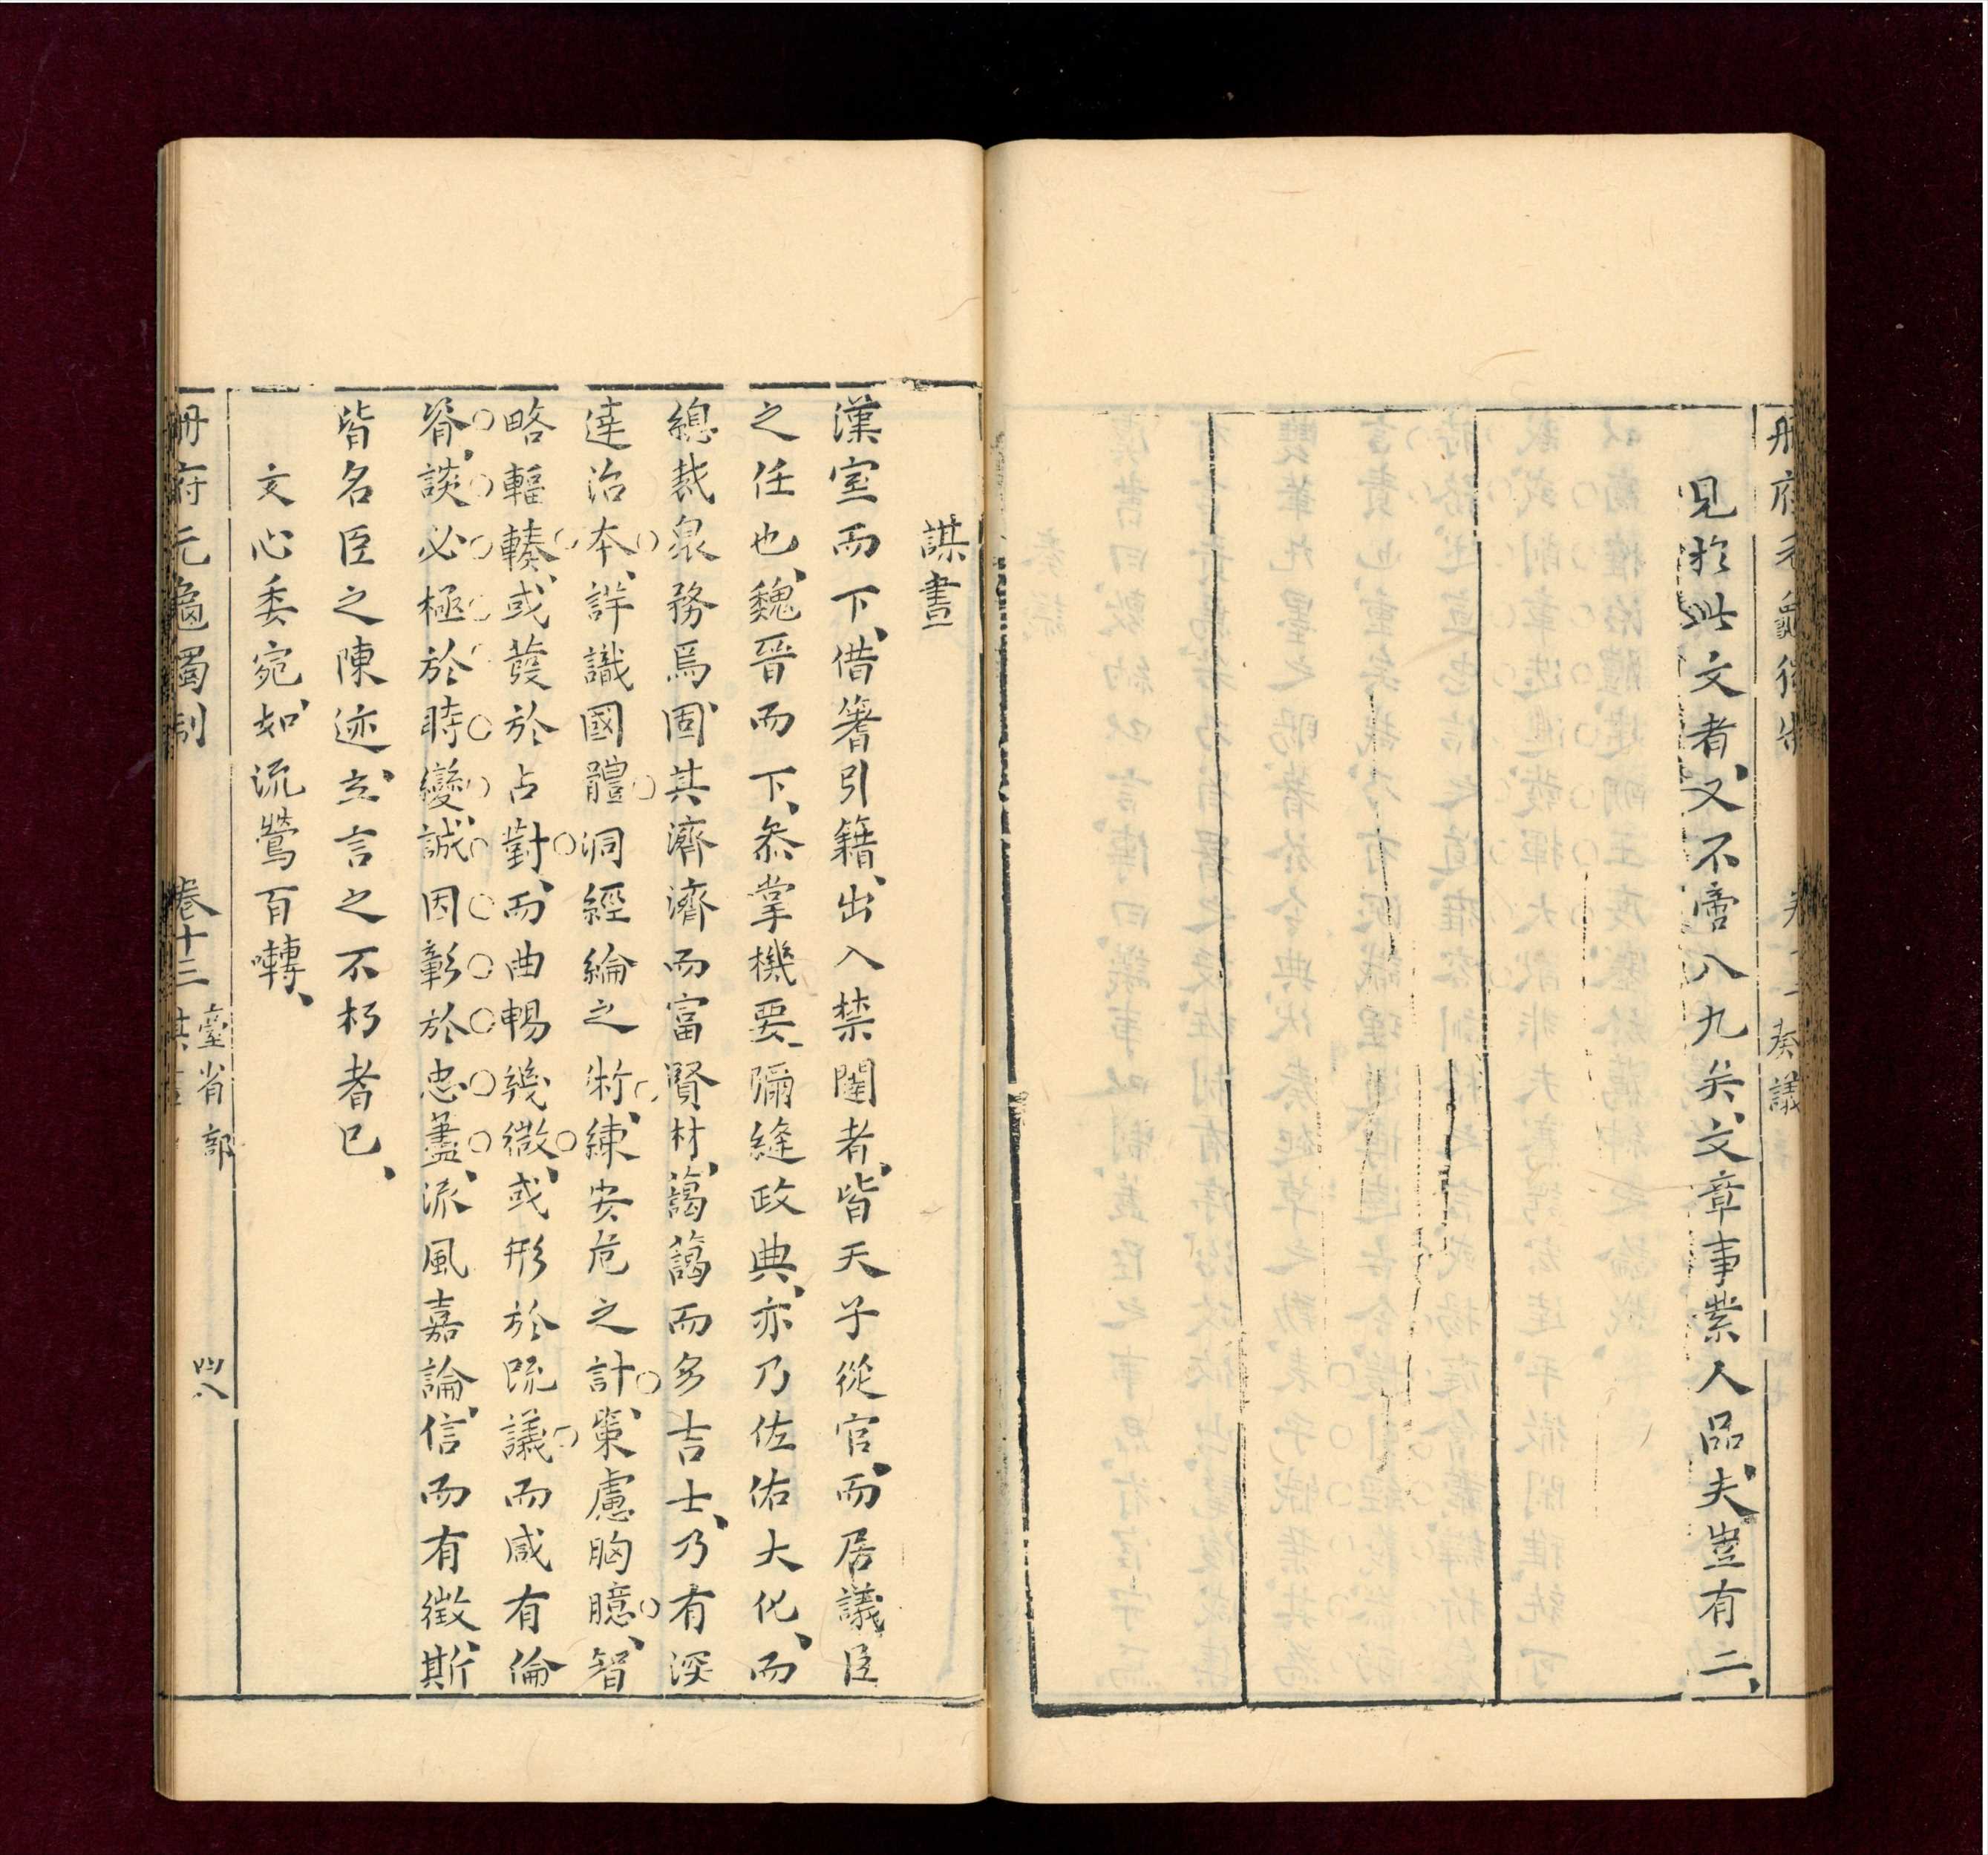 見於此文者、又不啻八九矣、文章事業人品、夫豈有二、
奏議
謀晝
漢室而下、借箸引籍、出入禁闥者、皆天子從官、而居議臣
之任也、魏晉而下、叅掌機要、彌縫政典、亦乃佐佑大化、而
總裁泉務焉、固其濟濟而富賢材、藹藹而多吉士、乃有深
達治本、詳識國體、洞經綸之術、練安危之計、策慮胸臆、智
略輻輳、或發於占對、而曲暢幾微、或形於疏議、而咸有倫
脊、談必極於時變、誠因彰於忠藎、流風嘉論、信而有徵、斯
皆名臣之陳迹、立言之不朽者已、
文心委宛、如流鶯百囀、
冊府元龜獨制
卷十三
臺省部
四八